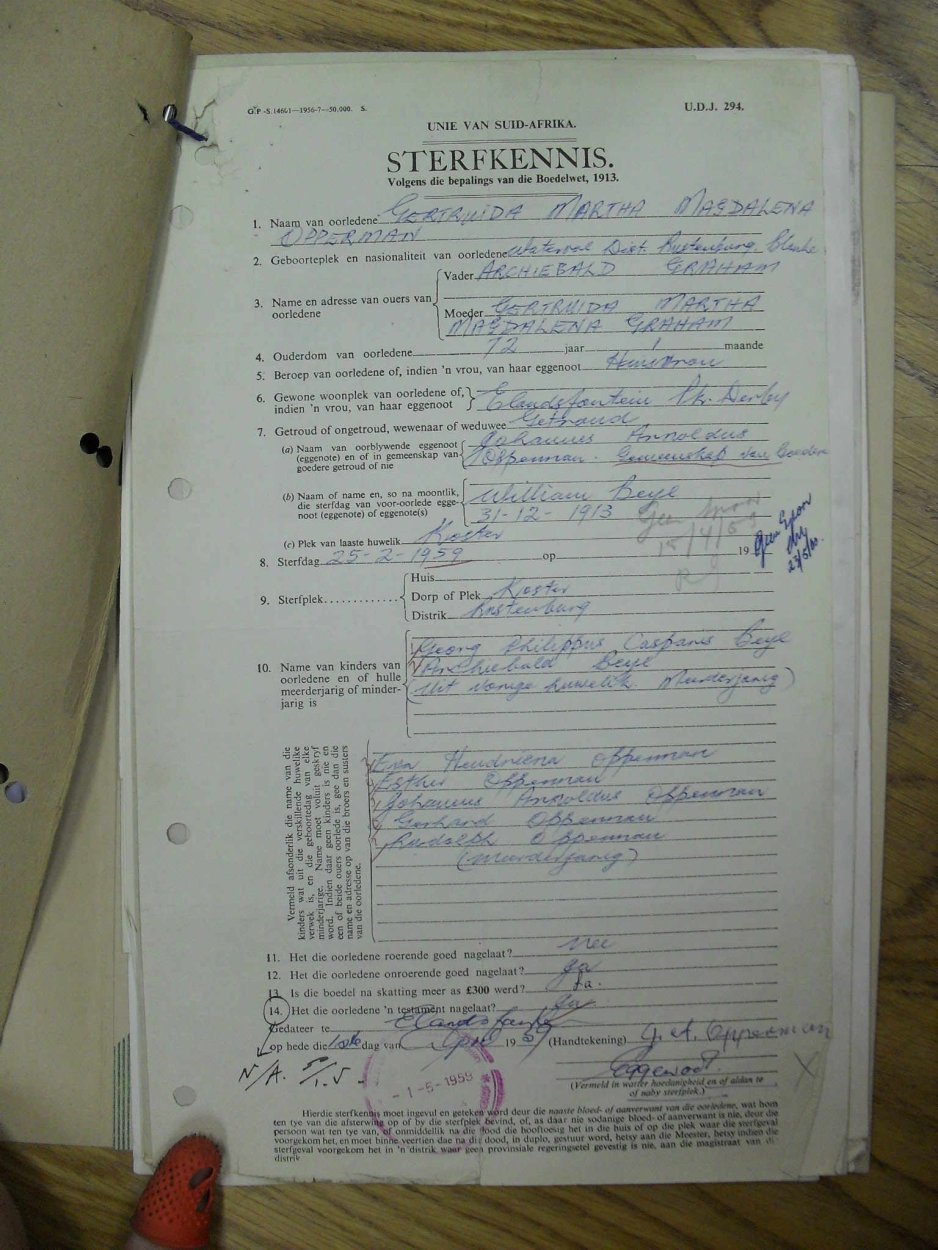 G.P.-S.14601—1956-7—50,000. S.
U.D.J. 294.
UNIE VAN SUID-AFRIKA.
STERFKENNIS.
Volgens die bepalings van die Boedelwet, 1913.
1. Naam van oorledene GERTRUIDA MARTHA MAGDALENA
OPPERMAN
2. Geboorteplek en nasionaliteit van oorledene Waterval Dist. Rustenburg. Blanke
3. Name en adresse van ouers van oorledene
Vader ARCHIEBALD GRAHAM
Moeder GERTRUIDA MARTHA
MAGDALENA GRAHAM
4. Ouderdom van oorledene 72 jaar 1 maande
5. Beroep van oorledene of, indien 'n vrou, van haar eggenoot Huisvrou
6. Gewone woonplek van oorledene of,
indien 'n vrou, van haar eggenoot Elandsfontein Pk. Derby
7. Getroud of ongetroud, wewenaar of weduwee Getroud
(a) Naam van oorblywende eggenoot
(eggenote) en of in gemeenskap van
goedere getroud of nie
Johannes Arnoldus
Opperman. Gemeenskap van Goedere
(b) Naam of name en, so na moontlik,
die sterfdag van voor-oorlede egge-
noot (eggenote) of eggenote(s)
William Beyl
31-12-1913
Geen spoor
15/4/59
(c) Plek van laaste huwelik Koster
8. Sterfdag 25-2-1959 op 19
Geen Spoor
9. Sterfplek
Huis
Dorp of Plek Koster
Distrik Rustenburg
10. Name van kinders van
oorledene en of hulle
meerderjarig of minder-
jarig is
Georg Philippus Casparis Beyl
Archiebald Beyl
(Uit vorige huwelik. Meerderjarig)
Vermeld afsonderlik die name van die
kinders wat uit die verskillende huwelike
verwek is, en die geboortedag van elke
minderjarige. Name moet voluit geskryf
word. Indien daar geen kinders is nie en
een of beide ouers oorlede is, gee dan die
name en adresse op van die broers en susters
van die oorledene.
Eva Hendriena Opperman
Esther Opperman
Johannes Arnoldus Opperman
Gerhard Opperman
Rudolph Opperman
(Meerderjarig)
11. Het die oorledene roerende goed nagelaat? Nee
12. Het die oorledene onroerende goed nagelaat? Ja
13. Is die boedel na skatting meer as £300 werd? Ja.
14. Het die oorledene 'n testament nagelaat? Ja
Gedateer te Elandsfontein
op hede die 1ste dag van April 1959 (Handtekening) J. A. Opperman
Eggenoot.
N/A.
-1-5-1959
(Vermeld in watter hoedanigheid en of aldan te
of naby sterfplek.)
Hierdie sterfkennis moet ingevul en geteken word deur die naaste bloed- of aanverwant van die oorledene, wat hom
ten tye van die afsterwing op of by die sterfplek bevind, of, as daar nie sodanige bloed- of aanverwant is nie, deur die
persoon wat ten tye van, of onmiddellik na die dood die hooftoesig het in die huis of op die plek waar die sterfgeval
voorgekom het, en moet binne veertien dae na die dood, in duplo, gestuur word, hetsy aan die Meester, hetsy indien die
sterfgeval voorgekom het in 'n distrik waar geen provinsiale regeringsetel gevestig is nie, aan die magistraat van di
distrik